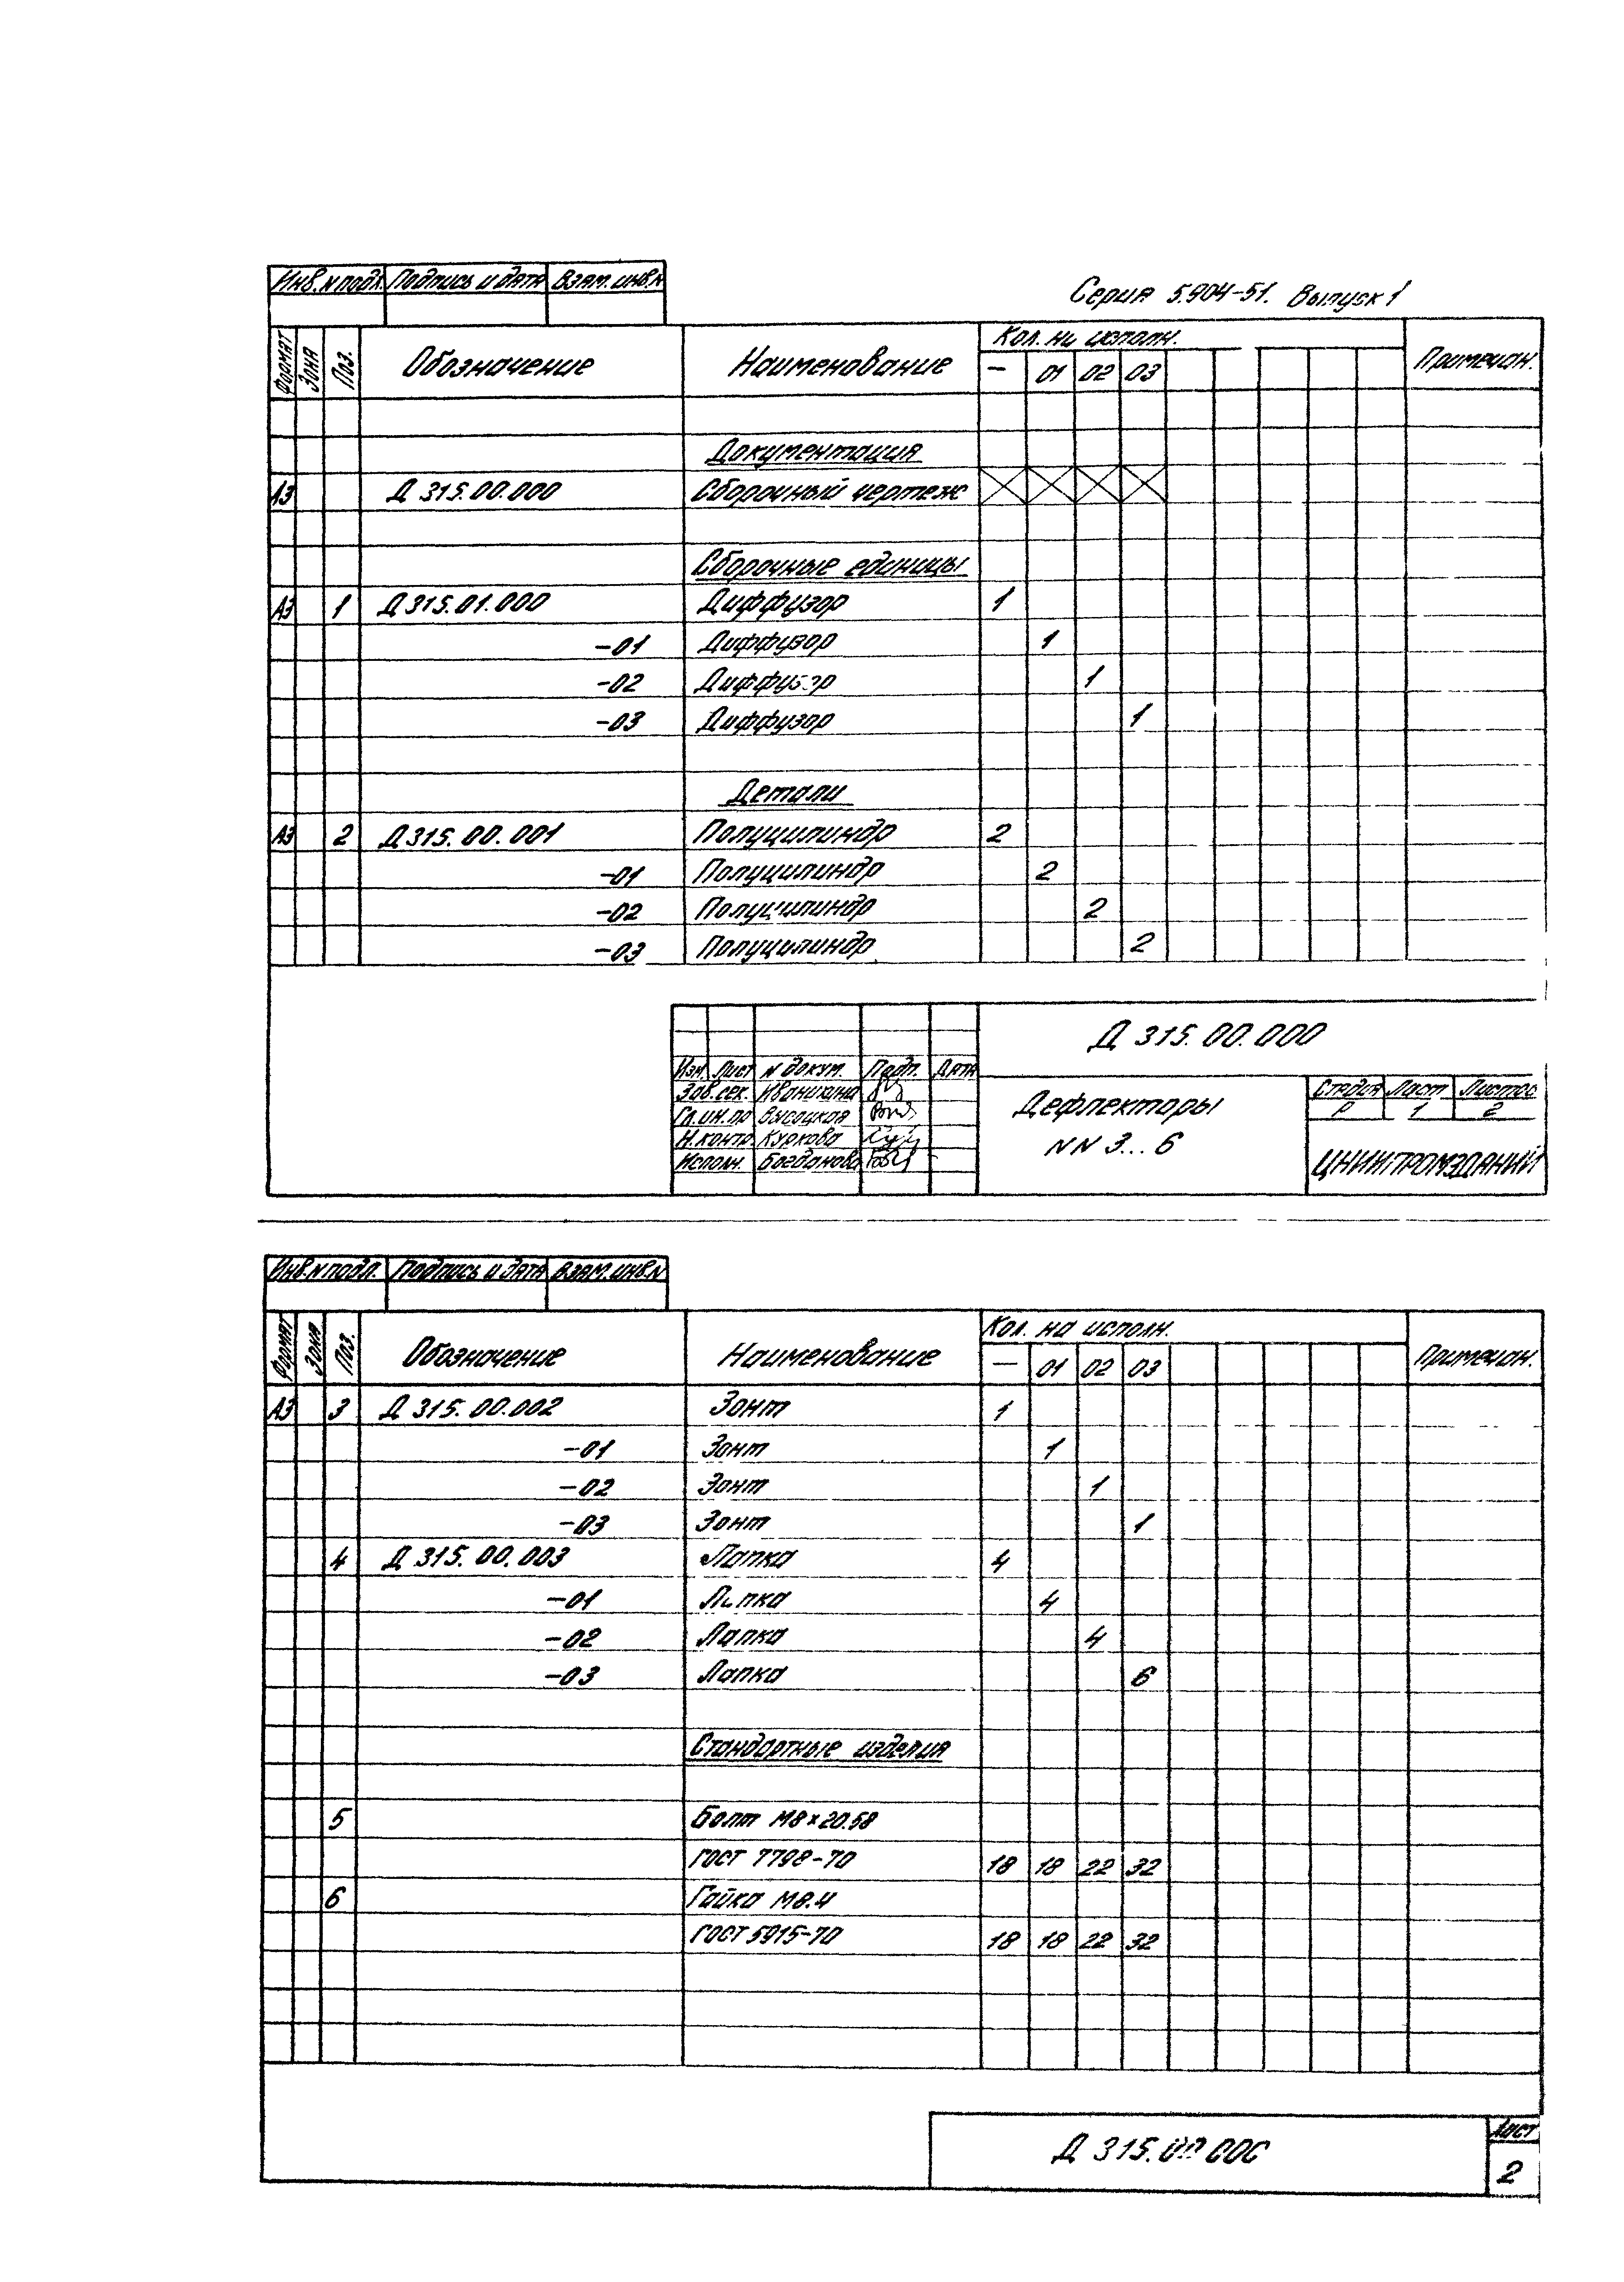 Инв.N подл. Подпись и дата Взам. инв.N
Серия 5.904-51. Выпуск 1
Формат Зона Поз. Обозначение Наименование Кол. на исполн. Примечан.
— 01 02 03
Документация
А3 Д 315.00.000 Сборочный чертеж
Сборочные единицы
А3 1 Д 315.01.000 Диффузор 1
-01 Диффузор 1
-02 Диффузор 1
-03 Диффузор 1
Детали
А3 2 Д 315.00.001 Полуцилиндр 2
-01 Полуцилиндр 2
-02 Полуцилиндр 2
-03 Полуцилиндр 2
Д 315.00.000
Изм. Лист N докум. Подп. Дата
Зав.сек. Иванихина
Гл.ин.пр Высоцкая
Н.контр. Куркова
Исполн. Богданова
Дефлекторы
NN 3...6
Стадия Лист Листов
Р 1 2
ЦНИИПРОМЗДАНИЙ
Инв.N подл. Подпись и дата Взам. инв.N
Формат Зона Поз. Обозначение Наименование Кол. на исполн. Примечан.
— 01 02 03
А3 3 Д 315.00.002 Зонт 1
-01 Зонт 1
-02 Зонт 1
-03 Зонт 1
4 Д 315.00.003 Лапка 4
-01 Лапка 4
-02 Лапка 4
-03 Лапка 6
Стандартные изделия
5 Болт М8×20.58
ГОСТ 7798-70 18 18 22 32
6 Гайка М8.4
ГОСТ 5915-70 18 18 22 32
Д 315.00.000
Лист
2